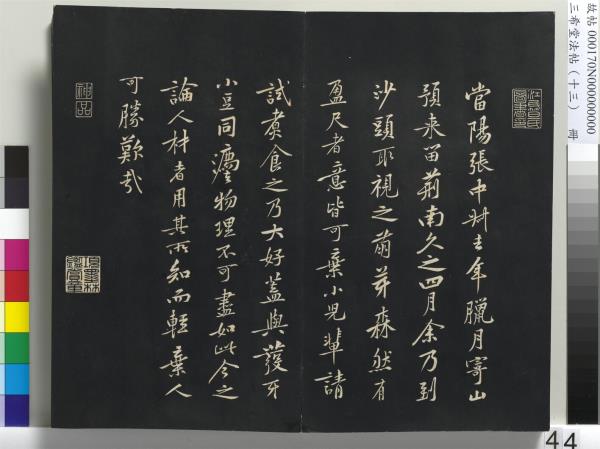 故帖 000170N000000000
三希堂法帖（十三） 冊
當陽張中叔去年臘月寄山
預来留荊南久之四月余乃到
沙頭取視之萌芽森然有
盈尺者意皆可棄小兒輩請
試煮食之乃大好蓋與發牙
小豆同灋物理不可盡如此今之
論人材者用其所知而輕棄人
可勝歎哉
神品
項墨林鑑賞章
44